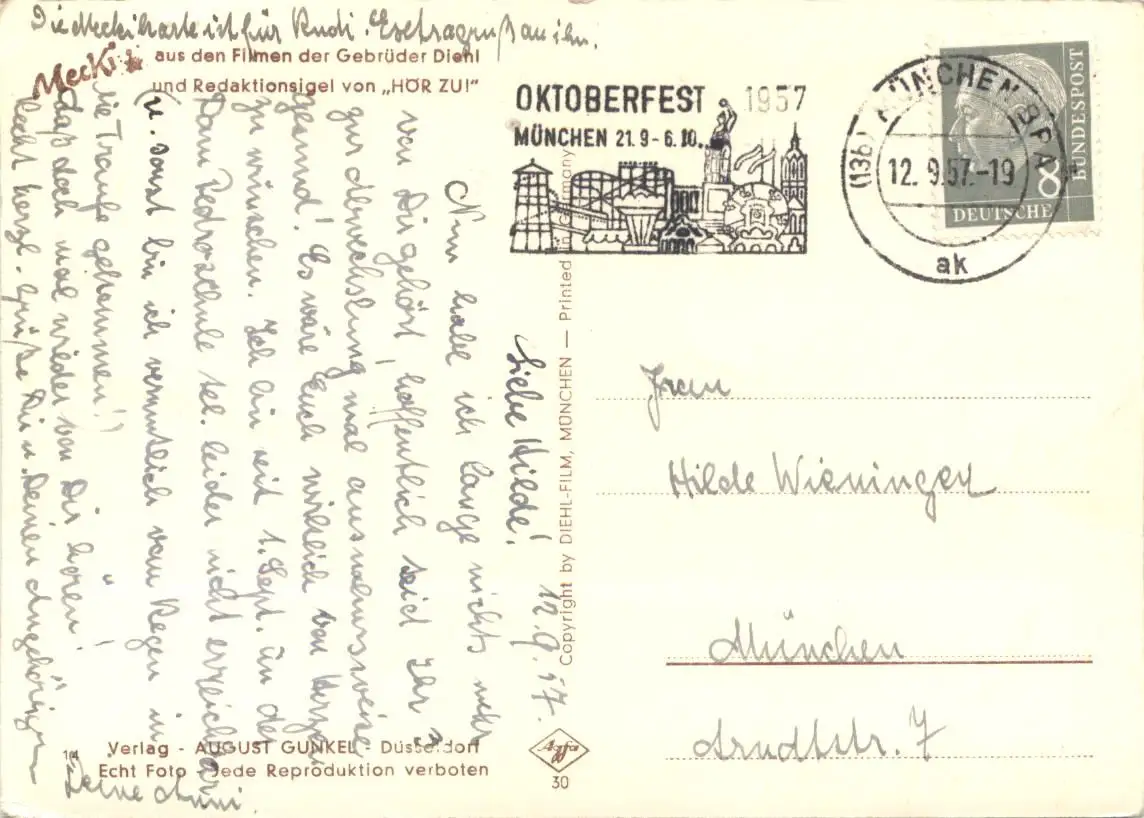 Die Meckikarte ist für Rudi. Extragruß an ihn.
Mecki
aus den Filmen der Gebrüder Diehl
und Redaktionsigel von „HÖR ZU!“
12.9.57.
Liebe Hilde!
Nun habe ich lange nichts mehr
von Dir gehört, hoffentlich seid Ihr
zur Abwechslung mal ausnahmsweise
gesund! Es wäre Euch wirklich von Herzen
zu wünschen. Ich bin seit 1. Sept. in der
Dom Pedroschule tel. leider nicht erreichbar
(u. sonst bin ich vermutlich vom Regen in
die Traufe gekommen!)
Laß doch mal wieder von Dir hören!
Recht herzl. Grüße Dir u. Deinen Angehörigen
Deine Anni.
Verlag - AUGUST GUNKEL - Düsseldorf
Echt Foto - Jede Reproduktion verboten
104
Copyright by DIEHL-FILM, MÜNCHEN — Printed in Germany
Agfa
30
OKTOBERFEST 1957
MÜNCHEN 21.9-6.10.
(13b) MÜNCHEN BPA
12.9.57.-19
ak
8
DEUTSCHE
BUNDESPOST
Frau
Hilde Wieninger
München
Arndtstr. 7